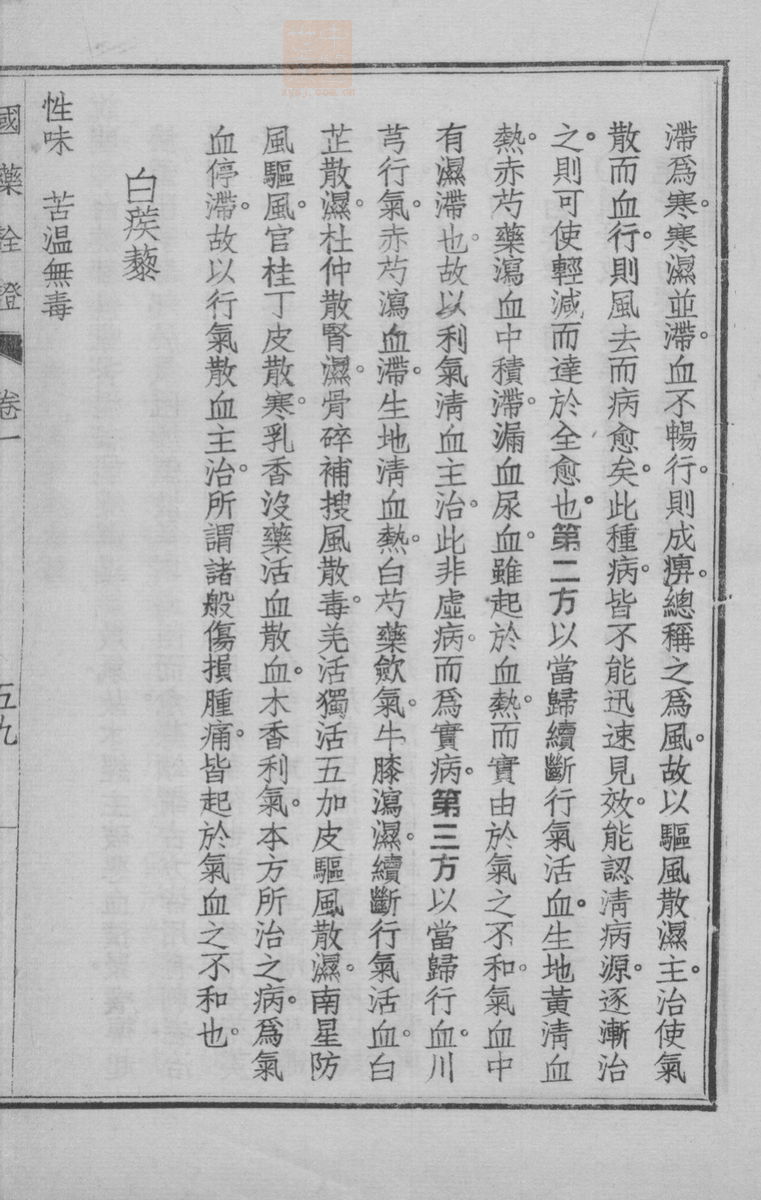 滯爲寒。寒濕並滯。血不暢行。則成痹。總稱之爲風。故以驅風散濕主。治使氣
散而血行。則風去而病愈矣。此種病。皆不能迅速見效。能認淸病源。逐漸治
之。則可使輕減而達於全愈也。第二方以當歸續斷行氣活血。生地黃淸血
熱。赤芍藥瀉血中積滯。漏血尿血。雖起於血熱。而實由於氣之不和。氣血中
有濕滯也。故以利氣淸血主治。此非虛病。而爲實病。第三方以當歸行血。川
芎行氣。赤芍瀉血滯。生地淸血熱。白芍藥歛氣。牛膝瀉濕。續斷行氣活血。白
芷散濕。杜仲散腎濕。骨碎補搜風散毒。羌活獨活五加皮驅風散濕。南星防
風驅風。官桂丁皮散寒。乳香沒藥活血散血。木香利氣。本方所治之病。爲氣
血停滯。故以行氣散血主治。所謂諸般傷損腫痛。皆起於氣血之不和也。
白蒺藜
性味　苦温無毒
國藥詮證　卷一　五九